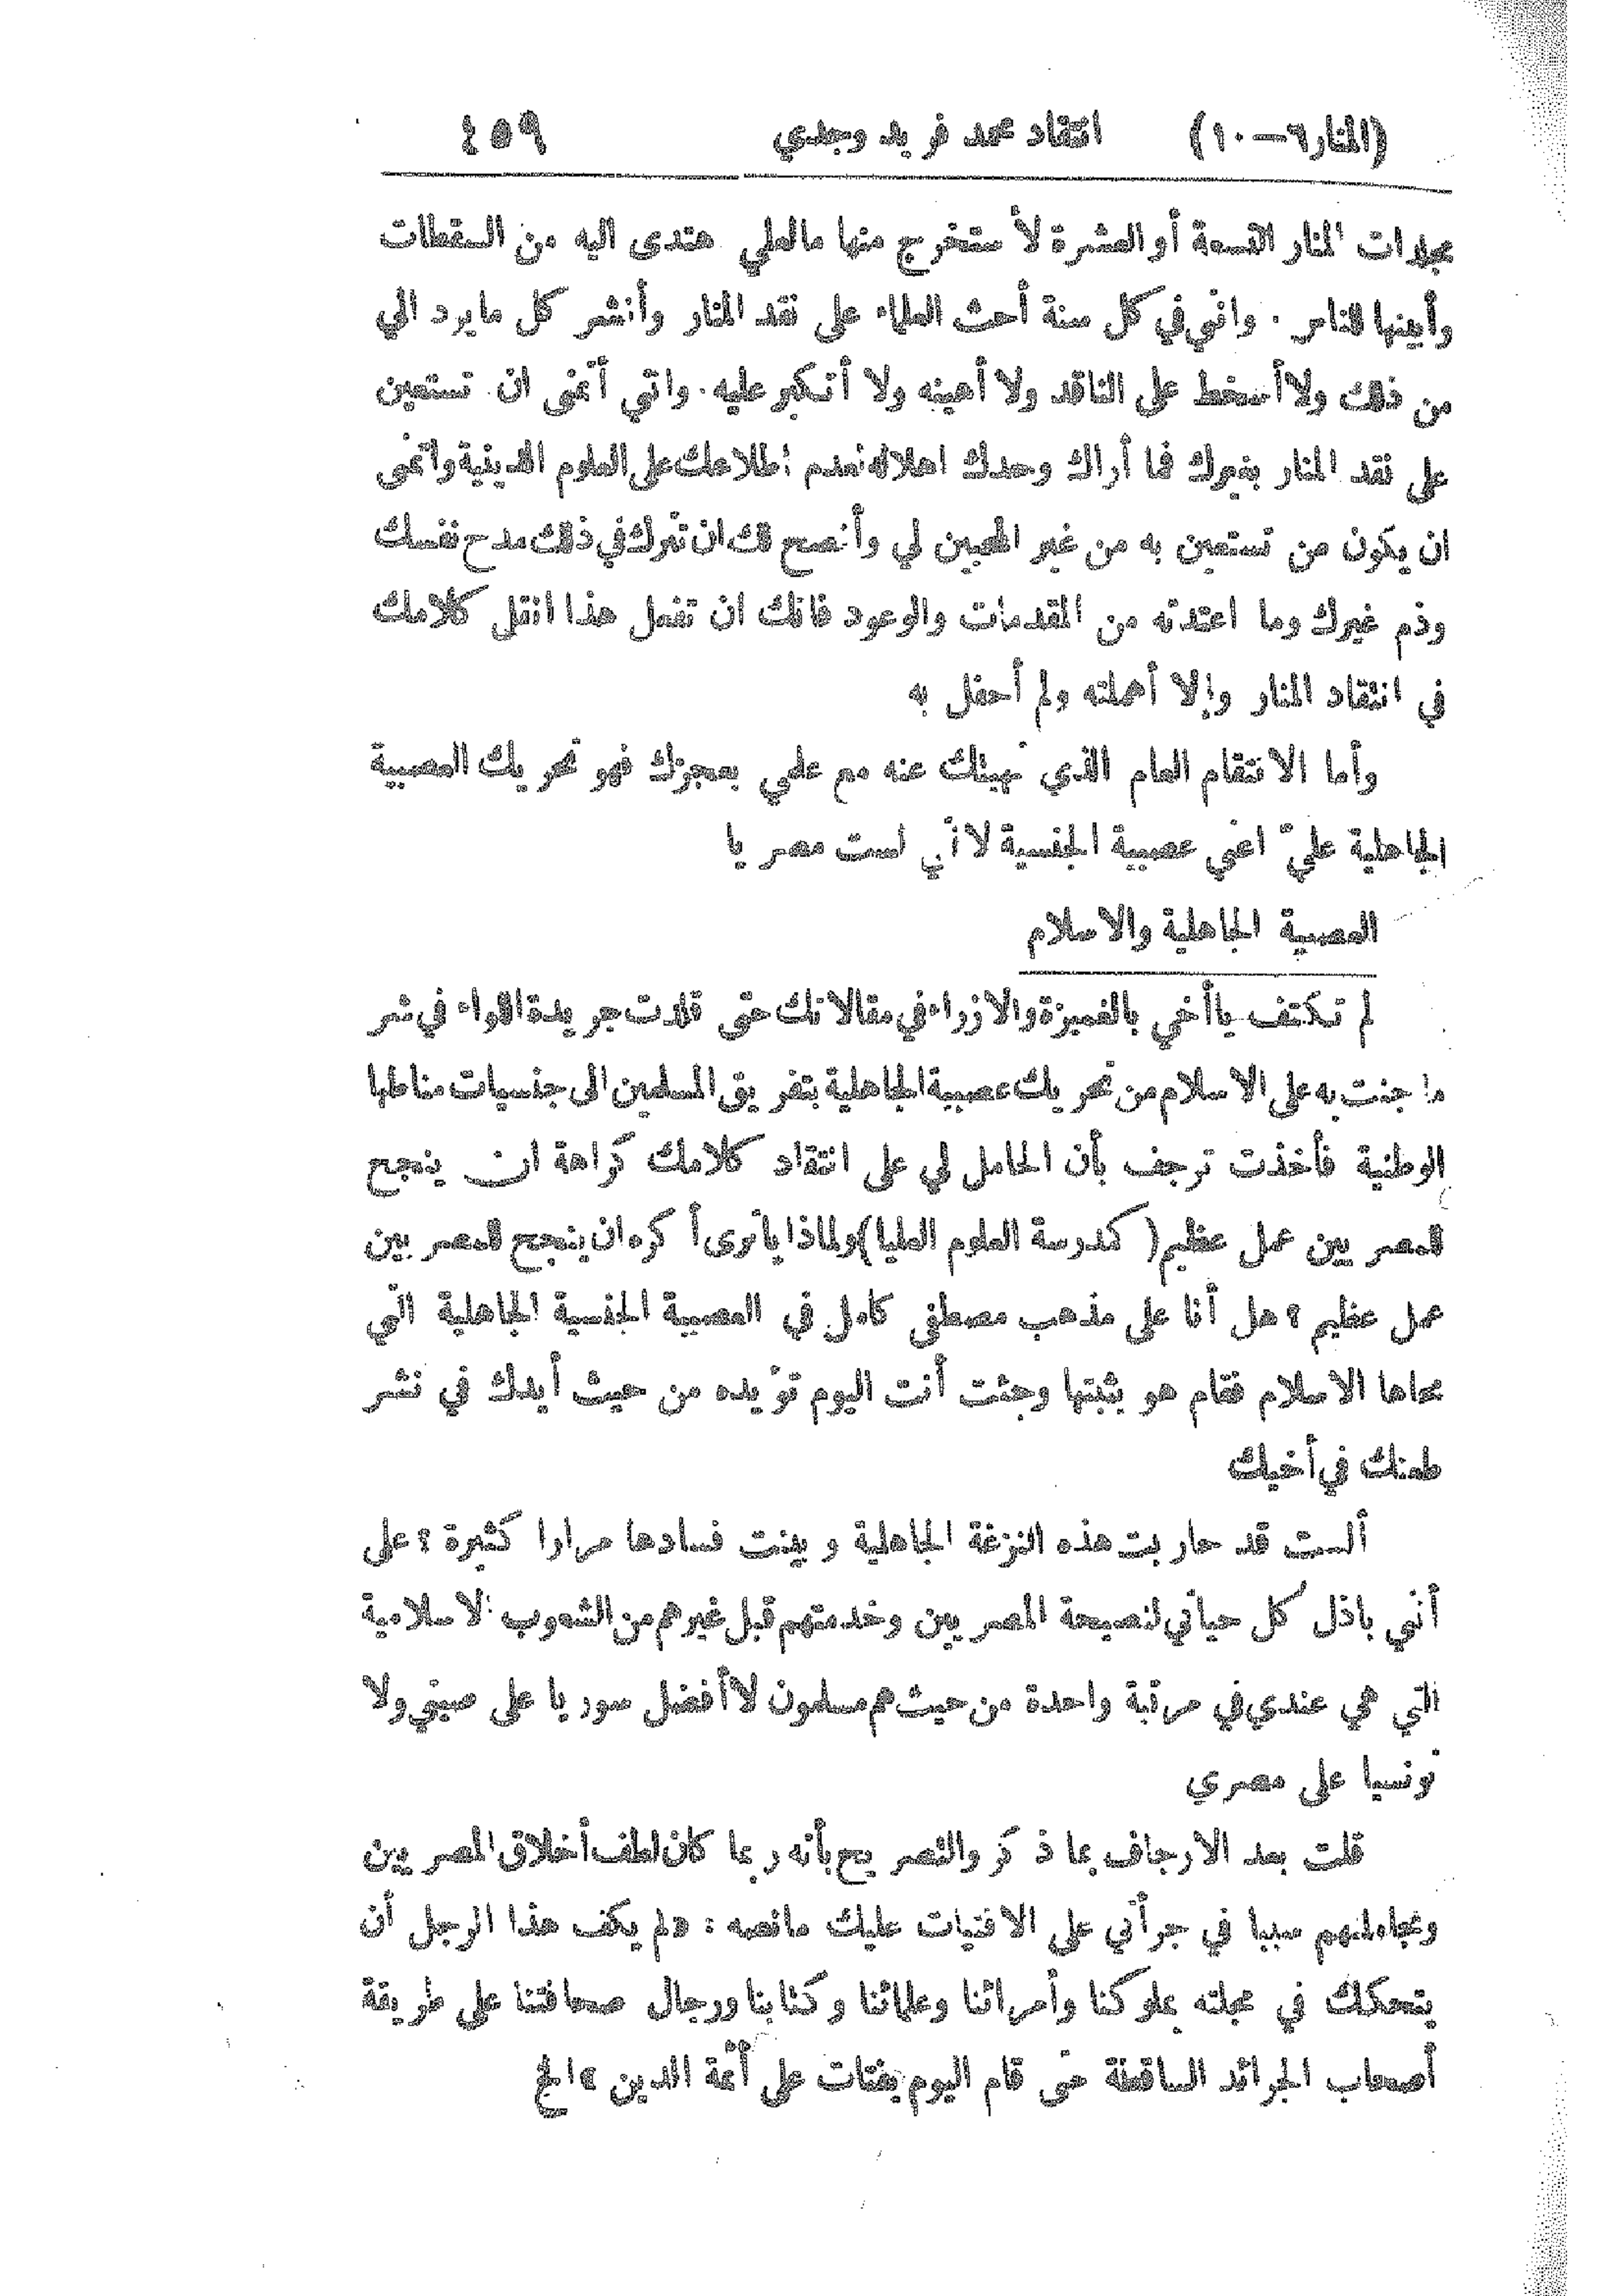 (المنار٦–١٠) انتقاد محمد فريد وجدي ٤٥٩
مجلدات المنار التسعة أو العشرة لأستخرج منها مالعلي هتدى اليه من السقطات
وأبينها للناس . واني في كل سنة أحث العلماء على نقد المنار وأنشر كل ما يرد الي
من ذلك ولا أسخط على الناقد ولا أهينه ولا أتكبر عليه . واني أتمنى ان تستعين
على نقد المنار بغيرك فما أراك وحدك اهلا له لعدم اطلاعك على العلوم الدينية واتمنى
ان يكون من تستعين به من غير المحبين لي وأنصح لك ان تترك في ذلك مدح نفسك
وذم غيرك وما اعتدته من المقدمات والوعود فانك ان تفعل هذا انقل كلامك
في انتقاد المنار وإلا أهملته ولم أحفل به
وأما الانتقام العام الذي نهيتك عنه مع علمي بعجزك فهو تحريك العصبية
الجاهلية عليّ اعني عصبية الجنسية لأني لست مصريا
العصبية الجاهلية والاسلام
لم تكتف ياأخي بالغميزة والازراء في مقالاتك حتى قلدت جريدة اللواء في شر
ما جنت به على الاسلام من تحريك عصبية الجاهلية بتفريق المسلمين الى جنسيات مناطها
الوطنية فأخذت ترجف بأن الحامل لي على انتقاد كلامك كراهة ان ينجح
للمصريين عمل عظيم ( كمدرسة العلوم العليا) ولماذا ياترى أكره ان ينجح للمصريين
عمل عظيم ؟ هل أنا على مذهب مصطفى كامل في العصبية الجنسية الجاهلية التي
محاها الاسلام فقام هو يثبتها وجئت أنت اليوم تؤيده من حيث أيدك في نشر
طعنك في أخيك
ألست قد حاربت هذه النزغة الجاهلية وبينت فسادها مرارا كثيرة ؟ على
أني باذل كل حياتي لنصيحة المصريين وخدمتهم قبل غيرهم من الشعوب الاسلامية
التي هي عندي في مرتبة واحدة من حيث هم مسلمون لا أفضل سوريا على صيني ولا
تونسيا على مصري
قلت بعد الارجاف بما ذكر والتصريح بأنه ربما كان لطف أخلاق المصريين
ومجاملتهم سببا في جرأتي على الافتيات عليك مانصه : «لم يكف هذا الرجل أن
يتحكك في مجلته بملوكنا وأمرائنا وعلمائنا وكتابنا ورجال صحافتنا على طريقة
أصحاب الجرائد الساقطة حتى قام اليوم يفتات على أئمة الدين » الخ